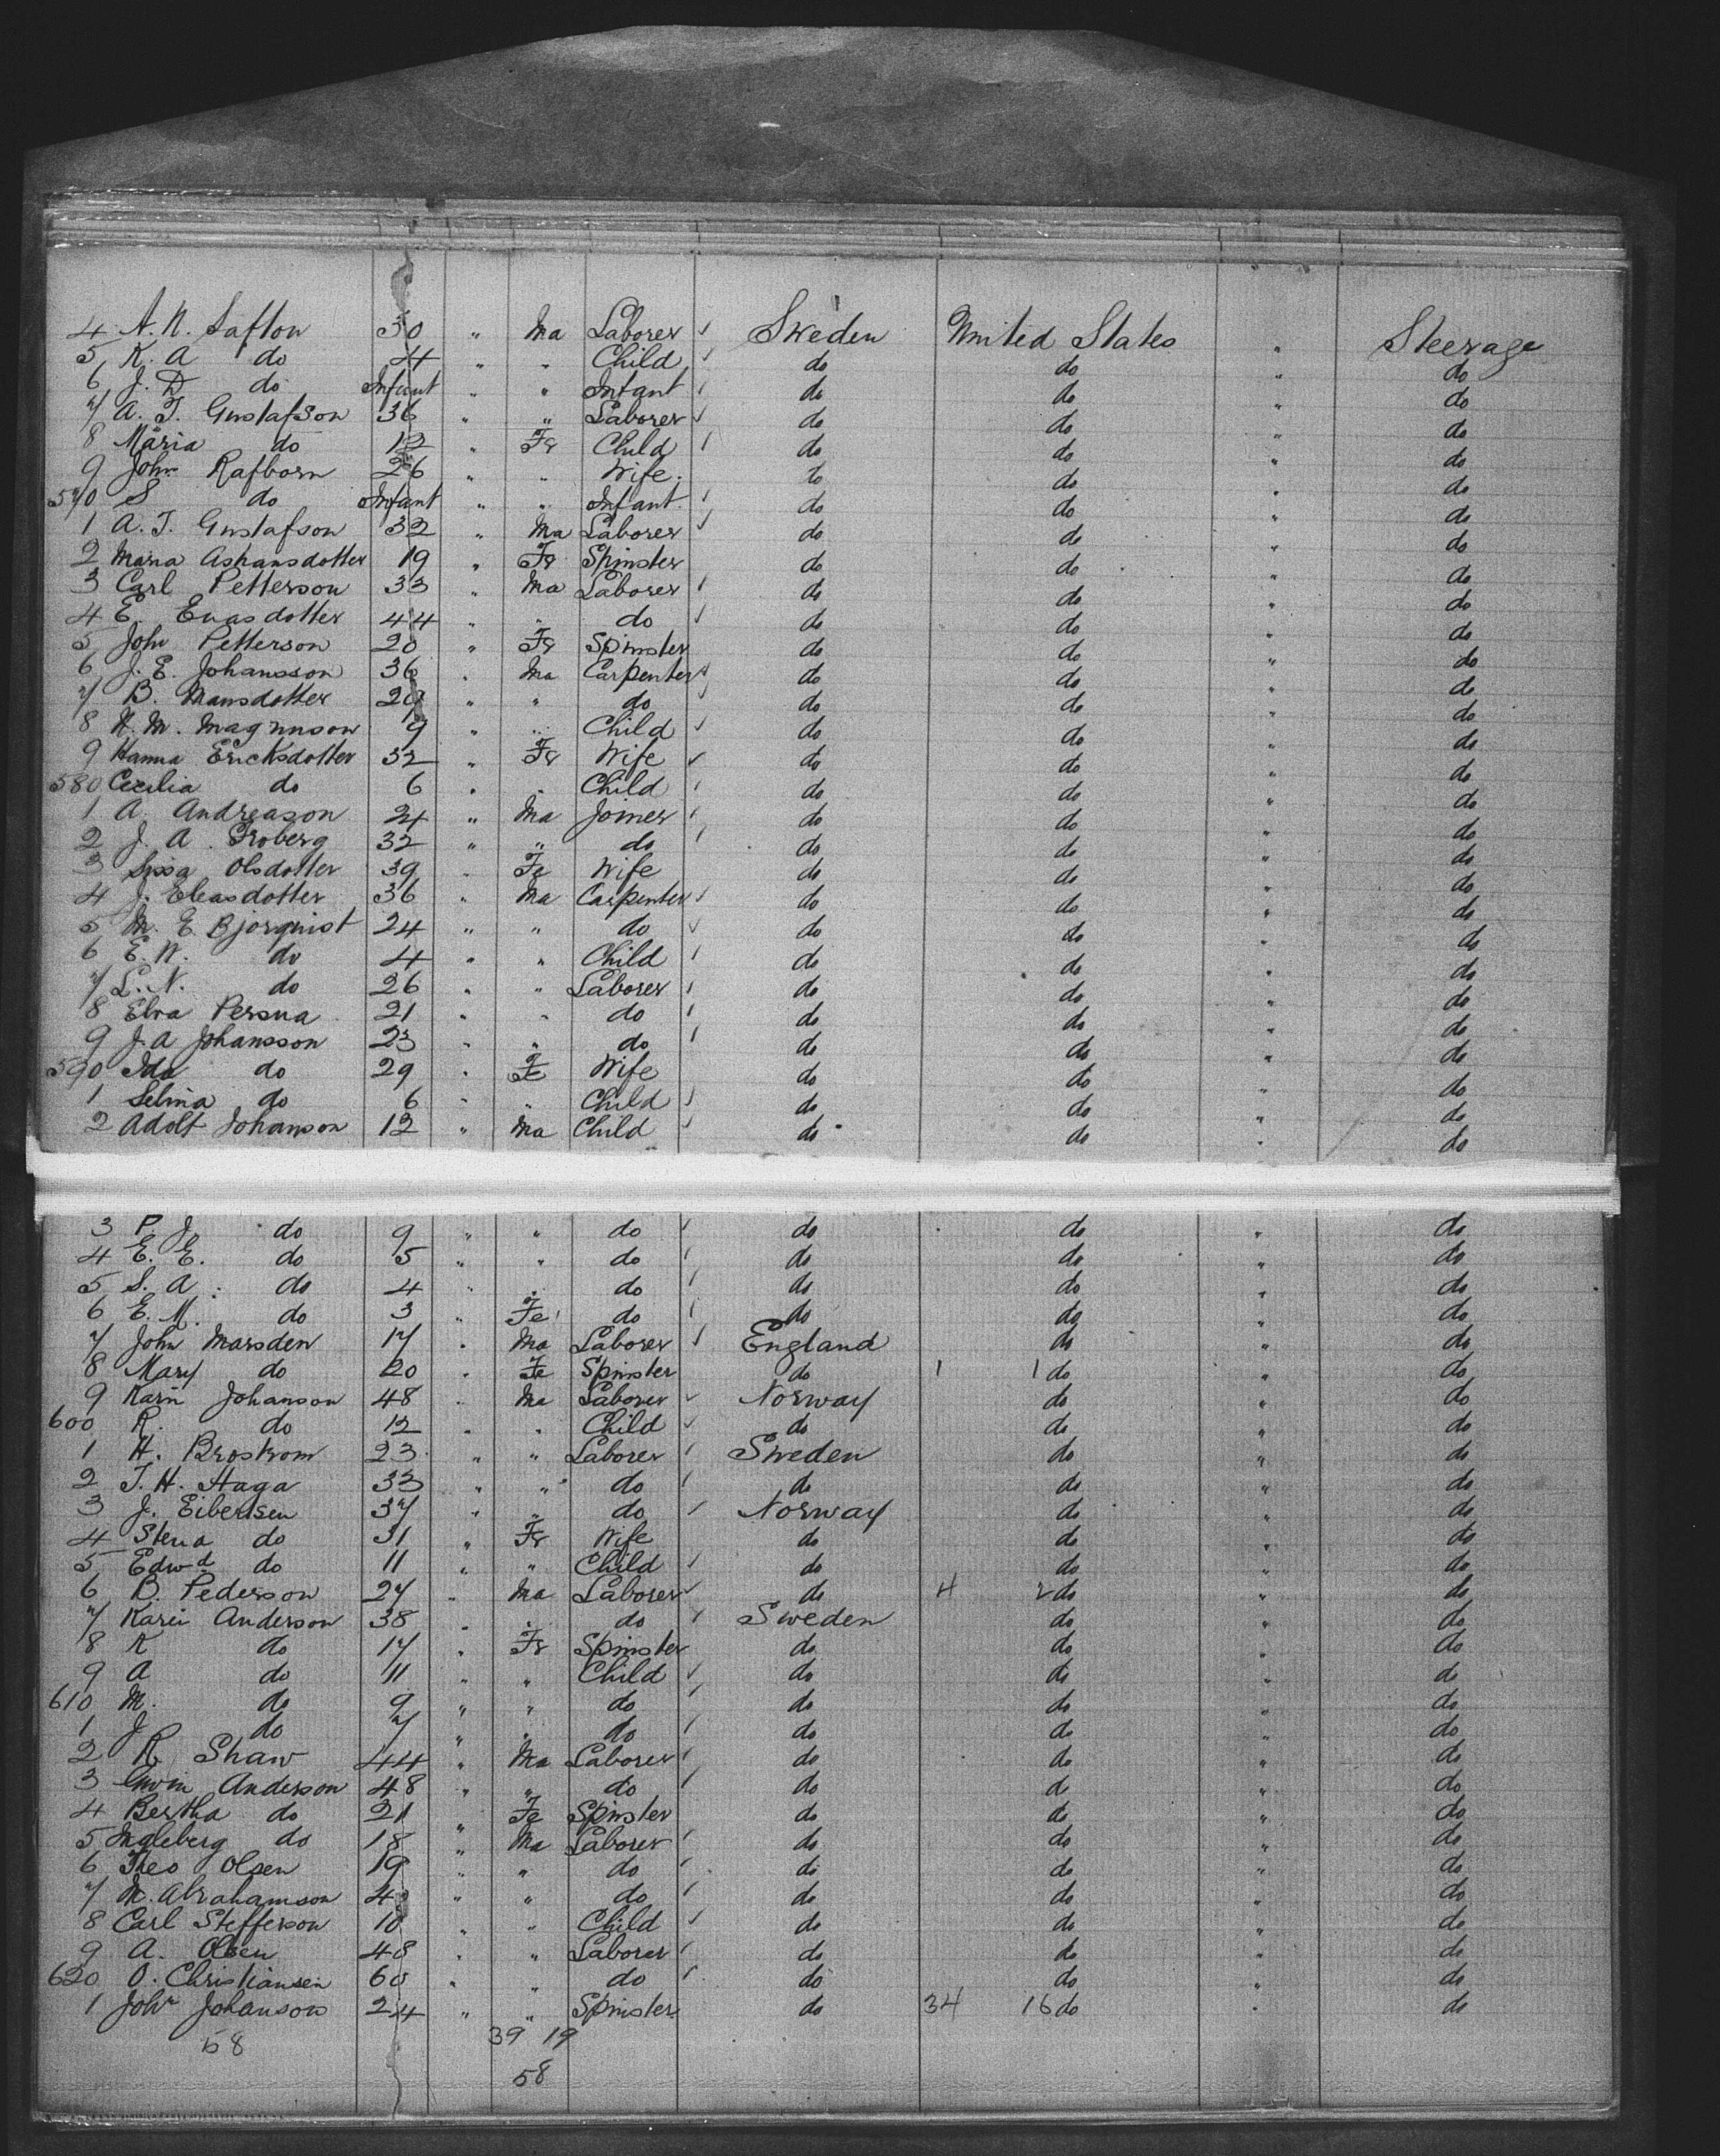 4 A. N. Saflon 30 " Ma Laborer ✓ Sweden United States " Steerage
5 K. A do 4 " " Child ✓ do do " do
6 J. D do Infant " " Infant do do " do
7 A. T. Gustafson 36 " " Laborer ✓ do do " do
8 Maria do 12 " Fe Child do do " do
9 John Rafborn 26 " " Wife do do " do
570 S do Infant " " Infant do do " do
1 A. T. Gustafson 32 " Ma Laborer ✓ do do " do
2 Maria Ashansdotter 19 " Fe Spinster do do " do
3 Carl Petterson 33 " Ma Laborer do do " do
4 E. Evasdotter 44 " " do do do " do
5 John Petterson 20 " Fe Spinster do do " do
6 J. E. Johansson 36 " Ma Carpenter ✓ do do " do
7 B. Mansdotter 29 " " do do do " do
8 N. M. Magnuson 9 " " Child ✓ do do " do
9 Hanna Ericksdotter 32 " Fe Wife ✓ do do " do
580 Cecilia do 6 " " Child do do " do
1 A. Andreason 24 " Ma Joiner do do " do
2 J. A. Froberg 32 " " do do do " do
3 Sissa Olsdotter 39 " Fe Wife do do " do
4 J. Eleasdotter 36 " Ma Carpenter ✓ do do " do
5 M. E. Bjorquist 24 " " do ✓ do do " do
6 E. W. do 4 " " Child do do " do
7 L. N. do 26 " " Laborer do do " do
8 Elva Persna 21 " " do do do " do
9 J. A Johansson 23 " " do do do " do
590 Ida do 29 " Fe Wife do do " do
1 Selma do 6 " " Child ✓ do do " do
2 Adolt Johanson 12 " Ma Child ✓ do do " do
3 P. J. do 9 " " do do do " do
4 E. E. do 5 " " do do do " do
5 S. A. do 4 " " do do do " do
6 E. M. do 3 " Fe do do do " do
7 John Marsden 17 " Ma Laborer ✓ England do " do
8 Mary do 20 " Fe Spinster do 1 1 do " do
9 Karin Johanson 48 " Ma Laborer ✓ Norway do " do
600 K. do 12 " " Child ✓ do do " do
1 H. Brostrom 23 " " Laborer Sweden do " do
2 T. H. Haga 33 " " do do do " do
3 J. Eibertsen 37 " " do Norway do " do
4 Stena do 31 " Fe Wife do do " do
5 Edwd do 11 " " Child ✓ do do " do
6 B. Pederson 27 " Ma Laborer ✓ do 4 2 do " do
7 Karin Anderson 38 " " do Sweden do " do
8 K do 17 " Fe Spinster do do " do
9 A do 11 " " Child ✓ do do " do
610 M. do 9 " " do do do " do
1 J. do 7 " " do do do " do
2 R. Shaw 44 " Ma Laborer do do " do
3 Anderson 48 " " do do do " do
4 Bertha do 21 Fe Spinster do do " do
5 Ingleberg do 18 " Ma Laborer do do " do
6 Theo Olsen 19 " " do do do " do
7 M. Abrahamson 4 " " do do do " do
8 Carl Stefferson 10 " " Child ✓ do do " do
9 A. Olsen 48 " " Laborer do do " do
620 O. Christiansen 60 " " do do do " do
1 Johr Johanson 24 " " Spinster do 34 16 do " do
58 39 19
58